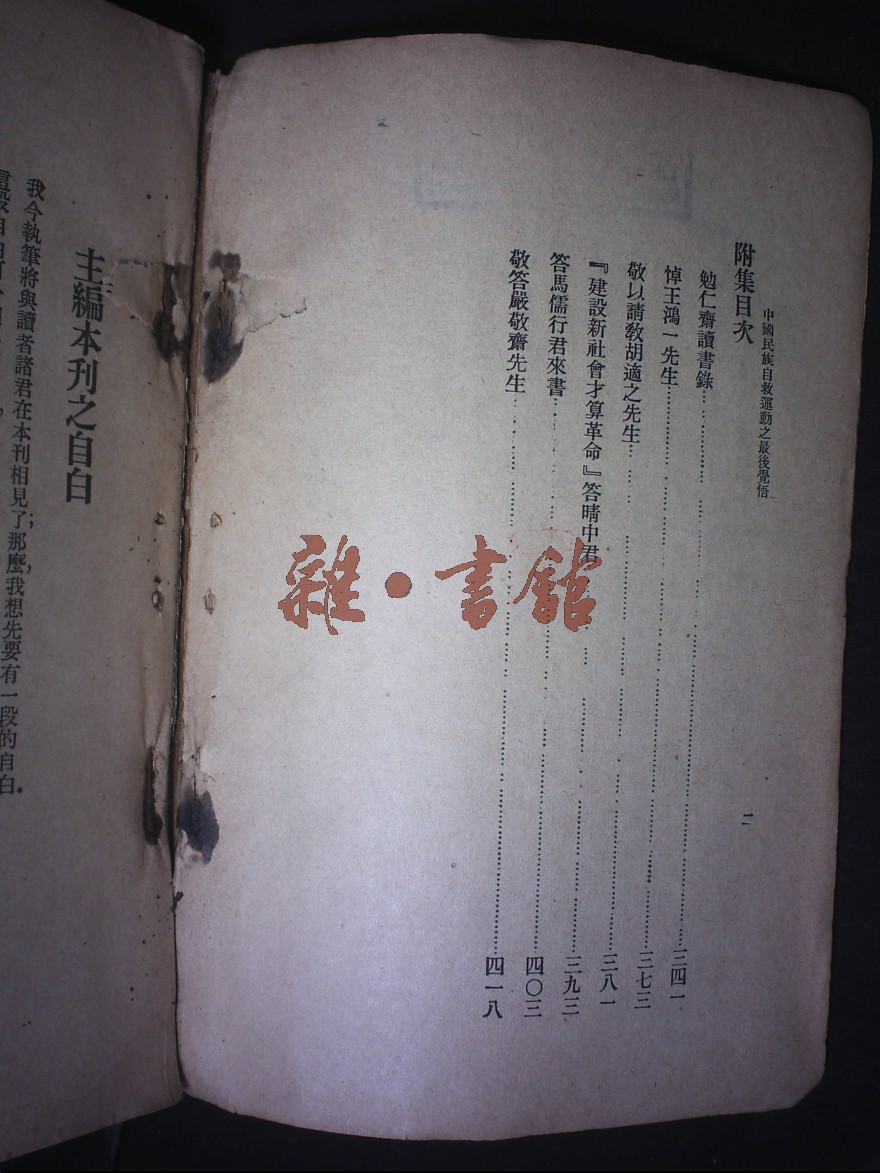 中國民族自救運動之最後覺悟
二
附集目次
勉仁齋讀書錄……三四一
悼王鴻一先生……三七三
敬以請敎胡適之先生……三八一
『建設新社會才算革命』答晴中君……三九三
答馬儒行君來書……四〇三
敬答嚴敬齋先生……四一八
主編本刊之自白
我今執筆將與讀者諸君在本刊相見了；那麼，我想先要有一段的自白。
雜·書館